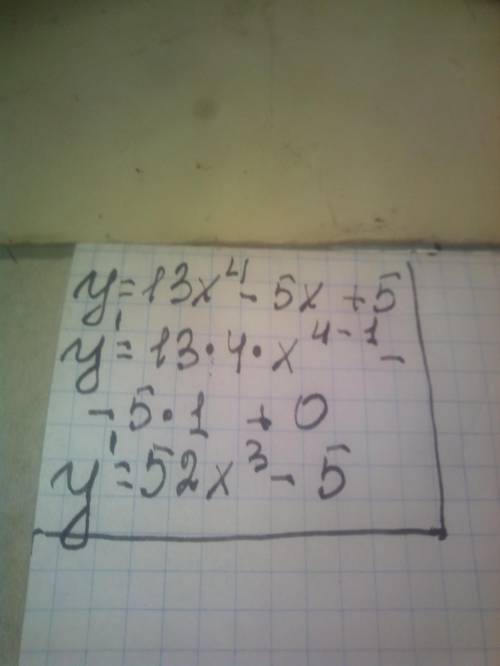 y=13x⁴- 5x +5
y'=13·4·x⁴⁻¹-
-5·1 + 0
y'=52x³- 5